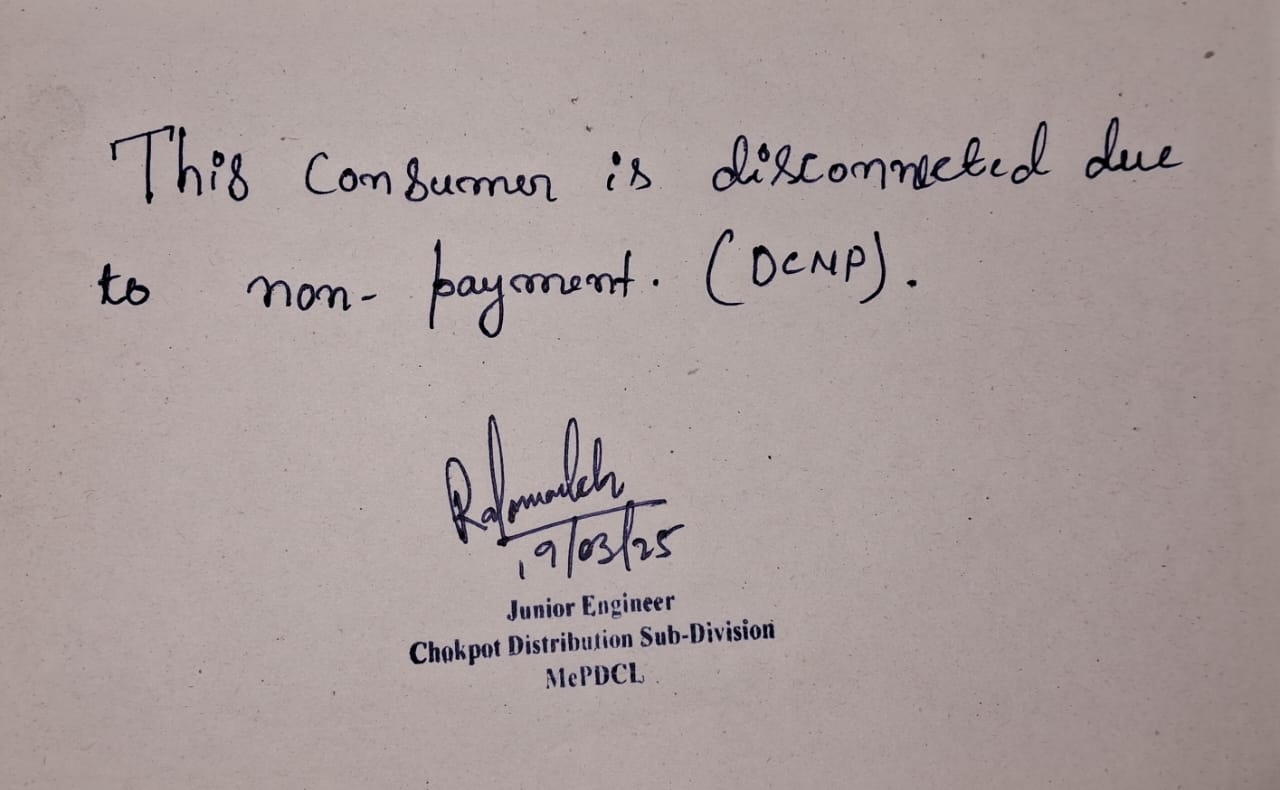 This Consumer is disconneted due
to non-payment. (DCNP).
19/03/25
Junior Engineer
Chokpot Distribution Sub-Division
MePDCL